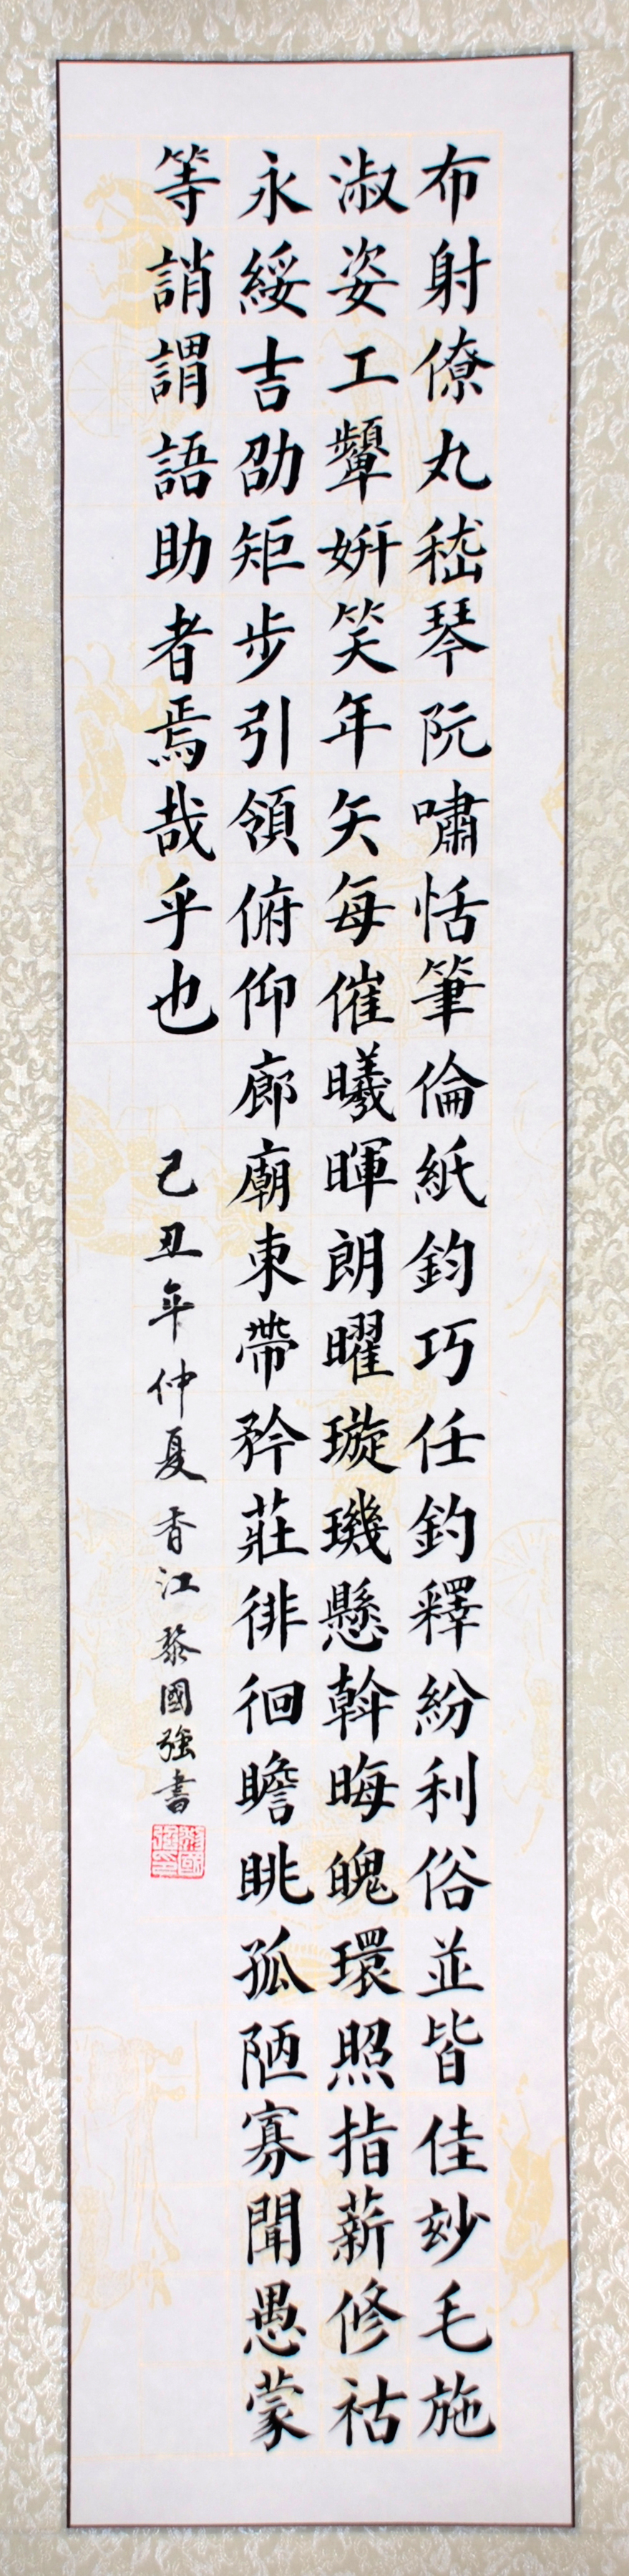 布射僚丸嵇琴阮嘯恬筆倫紙鈞巧任釣釋紛利俗並皆佳玅毛施
淑姿工顰姸笑年矢每催曦暉朗曜璇璣懸斡晦魄環照指薪修祜
永綏吉劭矩步引領俯仰廊廟束帶矜莊徘徊瞻眺孤陋寡聞愚蒙
等誚謂語助者焉哉乎也
己丑年仲夏香江黎國強書